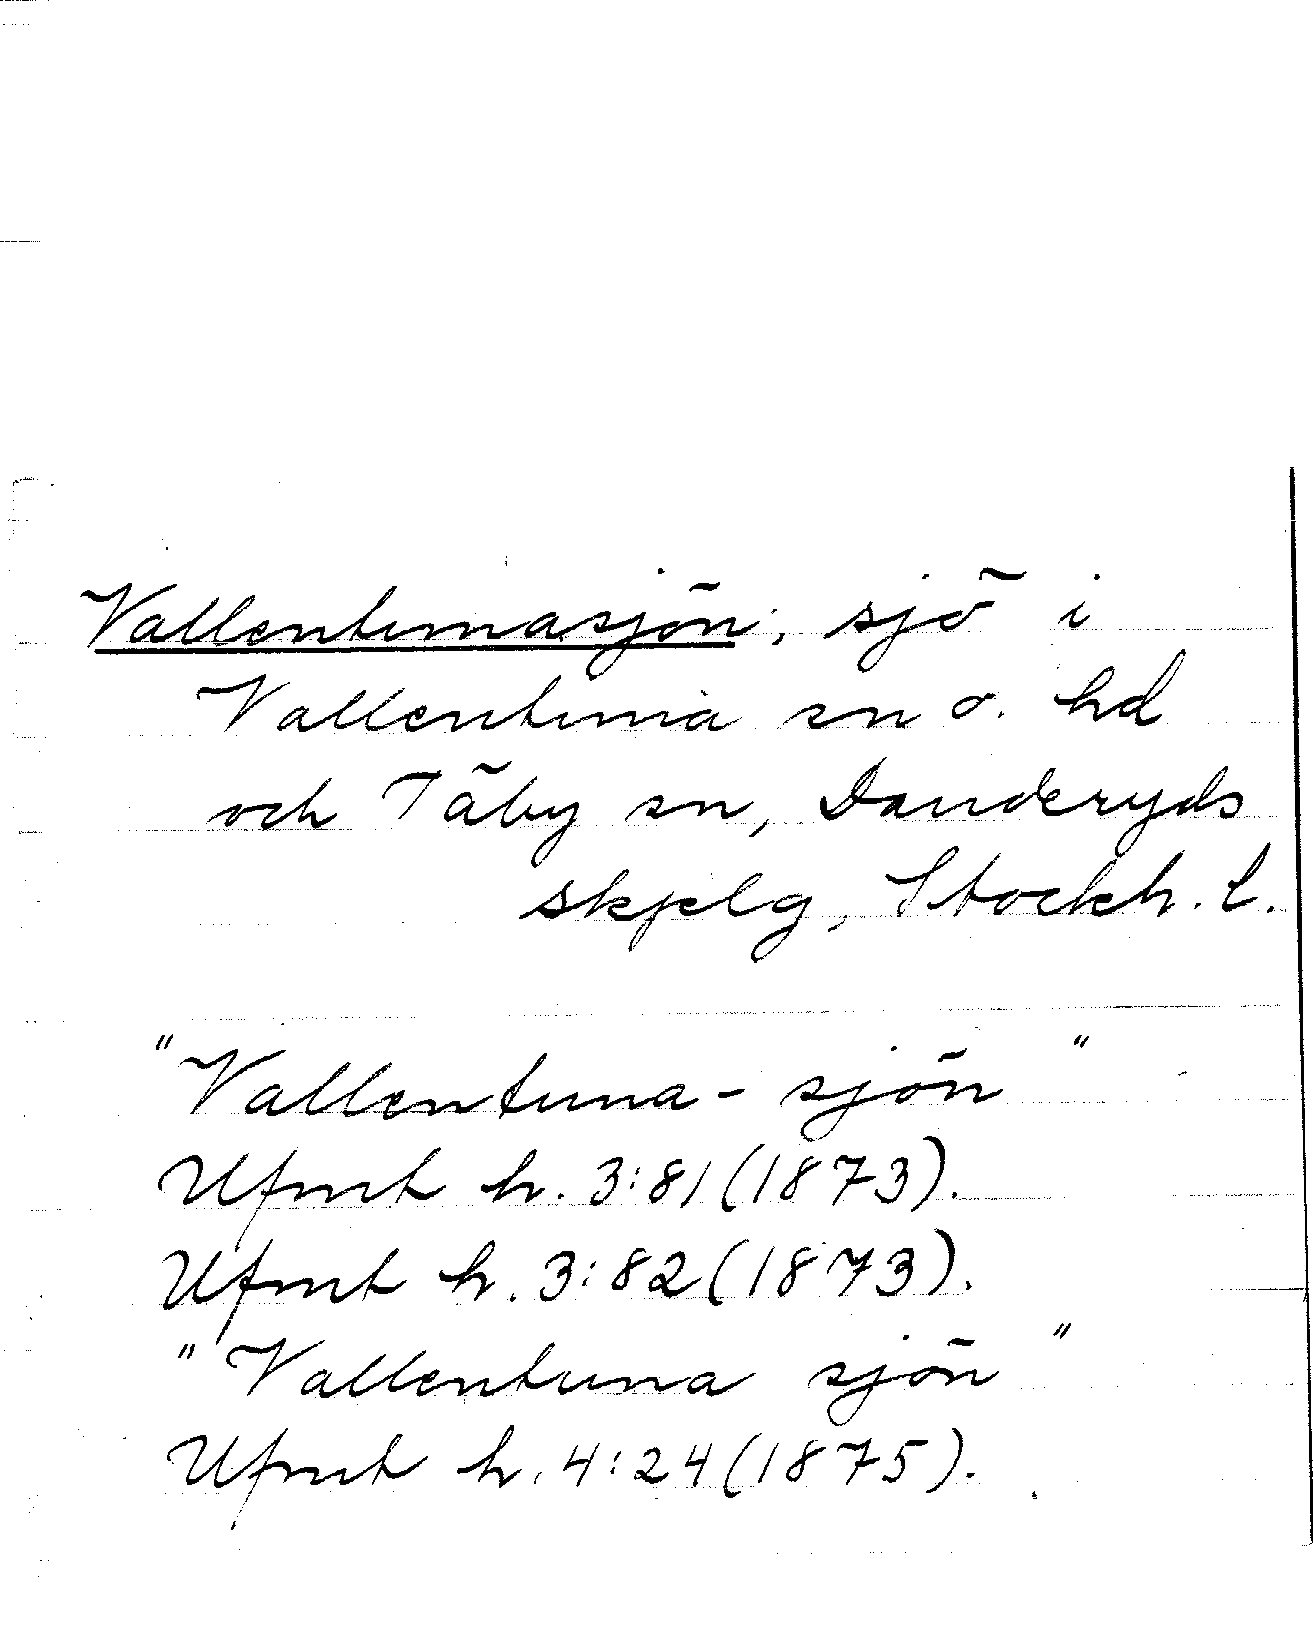 Vallentunasjön, sjö i
Vallentuna sn o. hd
och Täby sn, Danderyds
skjelg, Stockh. l.
"Vallentuna-sjön"
Ufmt h. 3:81 (1873).
Ufmt h. 3:82 (1873).
"Vallentuna sjön"
Ufmt h. 4:24 (1875).